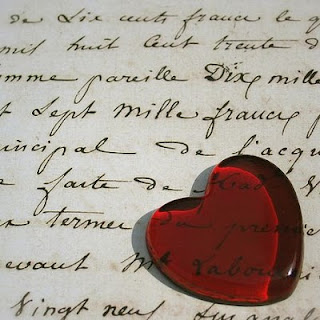 de Dix cents francs le q
mil huit cent trente d
omme pareille Dix mille
t Sept mille francs p
incipal de l'acqu
e faite de
ux termes du premie
evant Me Labou
Vingt neuf